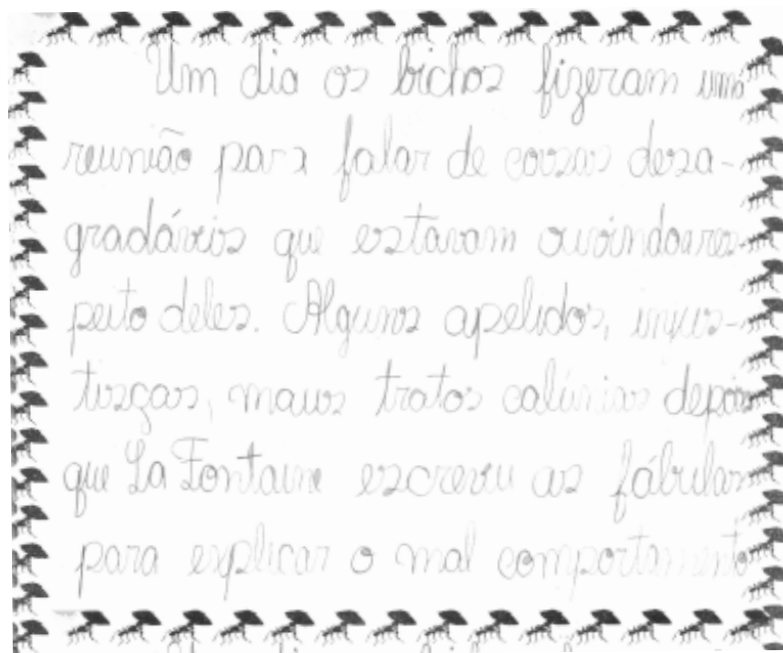 Um dia os bichos fizeram uma
reunião para falar de coisas desa-
gradáveis que estavam ouvindo a res-
peito deles. Alguns apelidos, injus-
tisças, maus tratos calúnias depois
que La Fontaine escreveu as fábulas
para explicar o mal comportamento